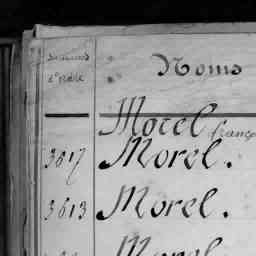 Numéros
d'ordre
Noms
Morel franço
3617 Morel.
3613 Morel.
Morel